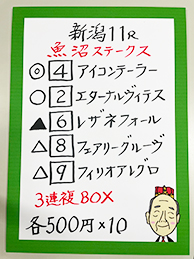 新潟11R
魚沼ステークス
◎4アイコンテーラー
○2エターナルヴィテス
▲6レザネフォール
△8フェアリーグルーヴ
△9フィリオアレグロ
3連複BOX
各500円×10